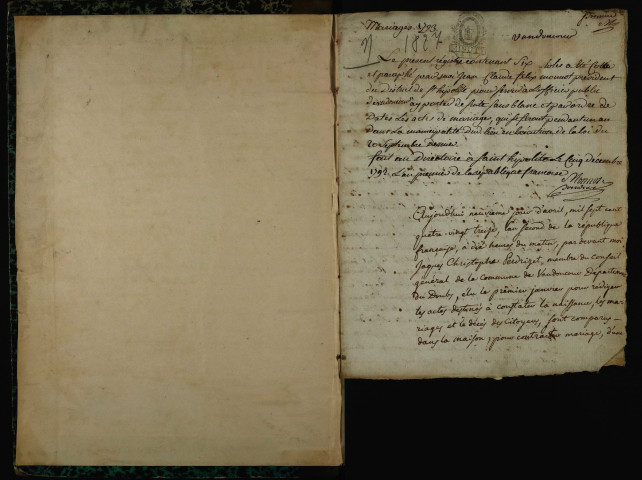 Mariages 1793
premier
1827
Vandoncourt
Le present registre contenant Six roles a été Cotté
et paraphé par moi Jean Claude felix monnot président
du District de St hypolite pour servir à l'officier public
ay porter de suite sans blanc et par ordre de
Dates Les actes de mariage, qui se feront pendant un an
dans La municipalité dudit lieu en Execution de la loi du
20 Septembre dernier
fait au Directoire à Saint hypolite Le Cinq décembre
1792 L'an premier de la république francaise
Monnot
président
Aujourd'hui neuvieme jour d'avril, mil sept cent
quatre vingt treize, l'an second de la république
française, à dix heures du matin, par devant moi
Jaques Christophe Perdrizet, membre du conseil
général de la commune de Vandoncourt Departement
du Doubs, elu le premier janvier pour rédiger
les actes destinés à constater la naissance, les ma-
riages et le décès des Citoyens, sont comparus
dans la maison, pour contracter mariage, d'une